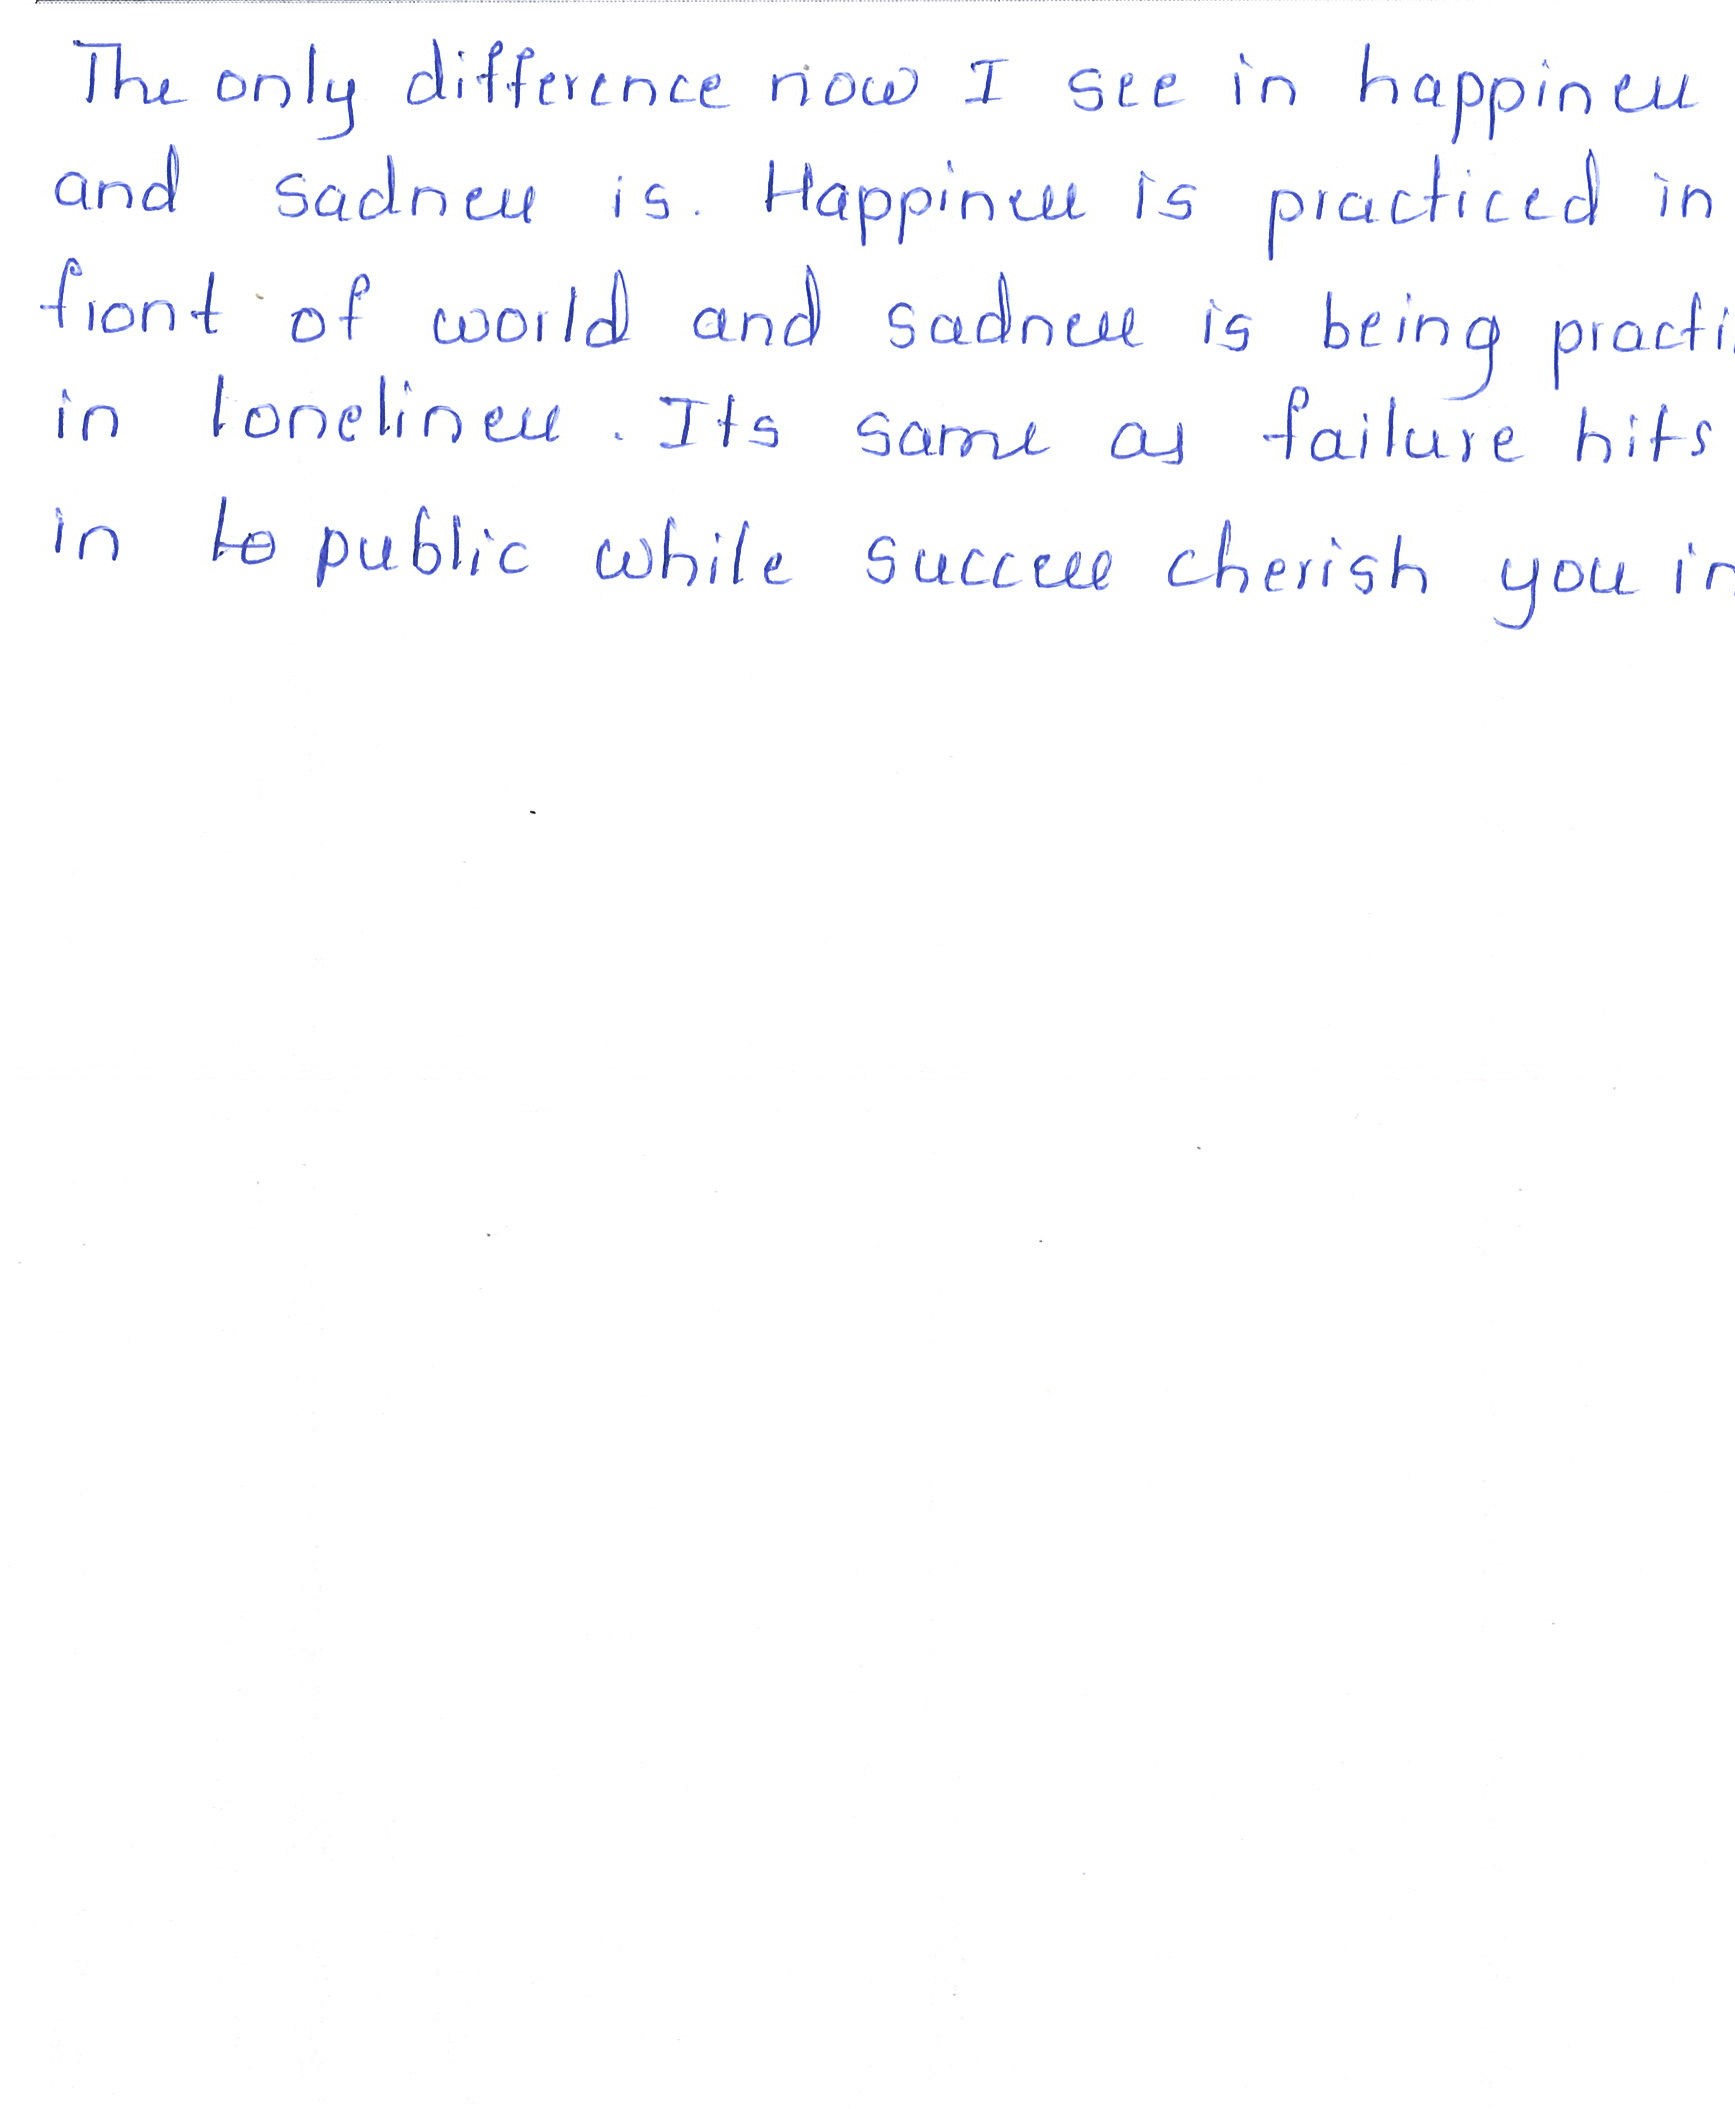 The only difference now I see in happiness
and sadness is. Happiness is practiced in
front of world and sadness is being practi
in loneliness. Its same as failure hits
in to public while success cherish you in